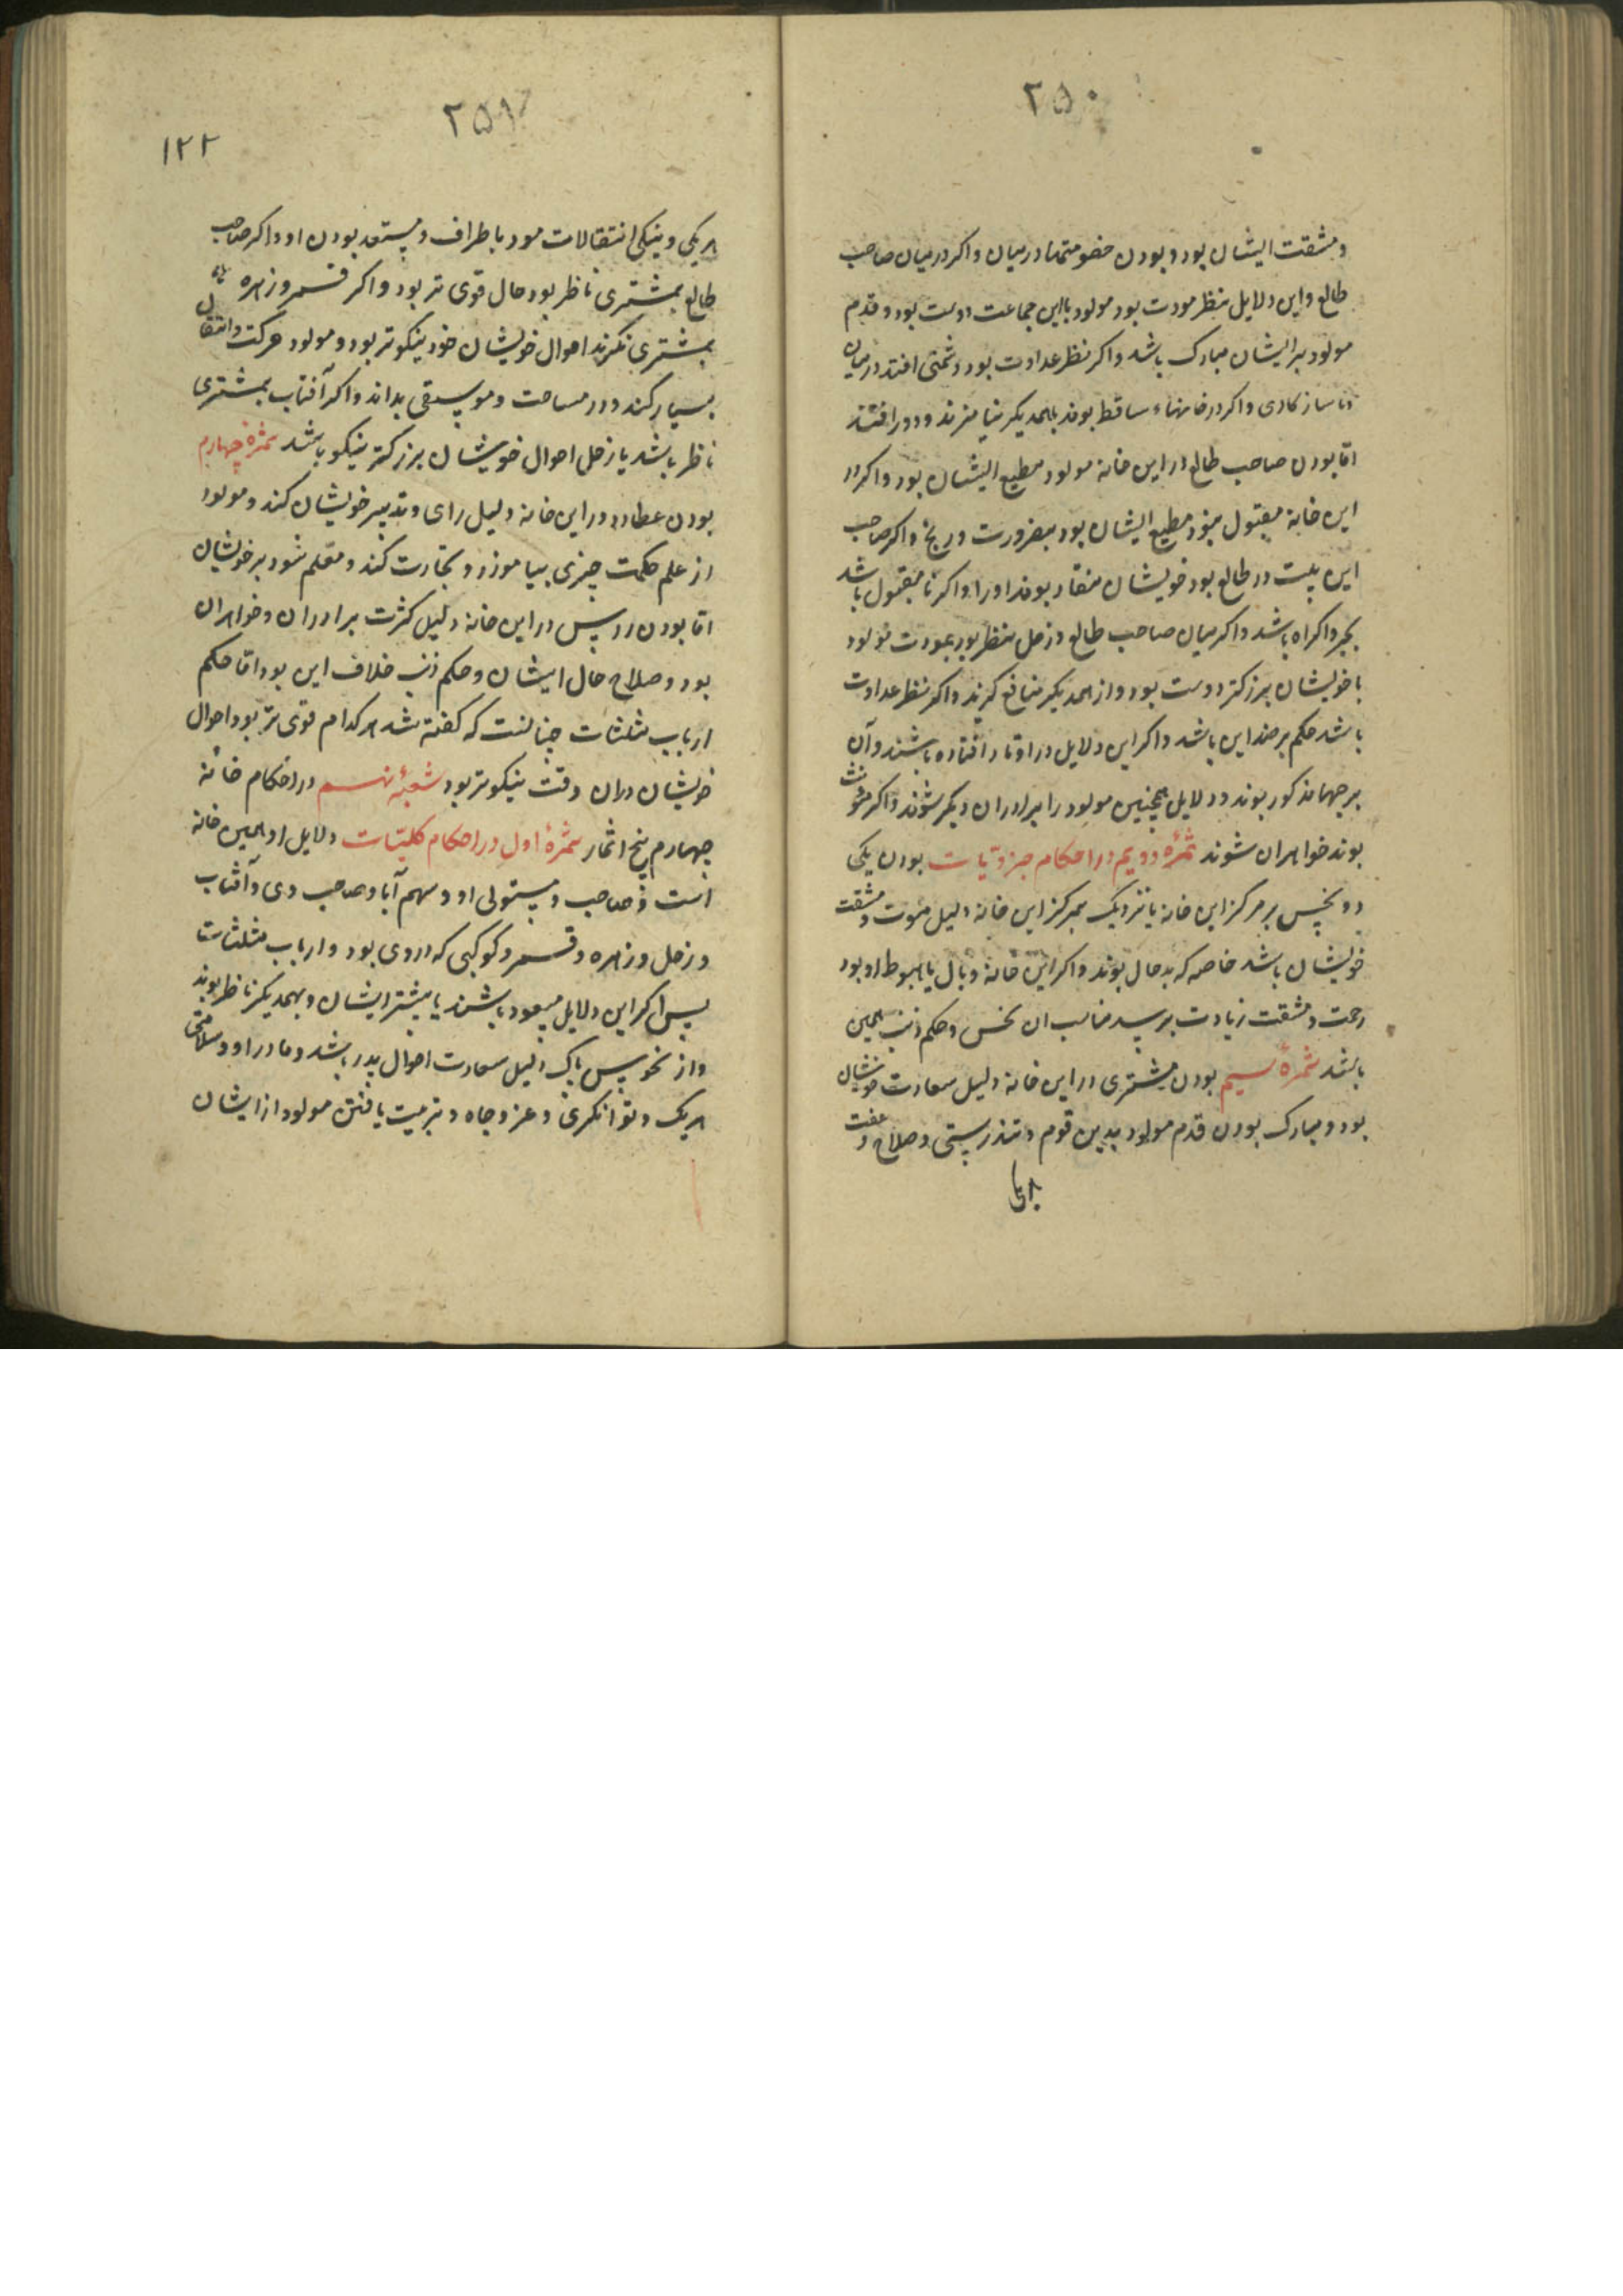 ۲۵۰
و مشقت ایشان بود و بودن خصومتها در میان و اکر در میان صاحب
طالع و این دلایل بنظر مودت بود مولود با این جماعت دوست بود و قدم
مولود بر ایشان مبارک باشد و اکر نظر عداوت بود دشمنی افتد در میان
و ناسازکاری و اکر در خانهاء ساقط بوند بهمدیکر نیامیزند و دور افتند
اما بودن صاحب طالع در این خانه مولود مطیع ایشان بود و اکر در
این خانه مقبول نبود مطیع ایشان بود بضرورت و رنج و اکر صاحب
این بیت در طالع بود خویشان منقاد بوند او را و اکر نا مقبول باشد
بجبر و اکراه باشد و اکر میان صاحب طالع و زحل نظر بود بمودت مولود
با خویشان بزرکتر دوست بود و از همدیکر منافع کیرند و اکر نظر عداوت
باشد حکم بر ضد این باشد و اکر این دلایل در اوتاد افتاده باشند و آن
برجها مذکور بوند و دلایل همچنین مولود را برادران دیکر شوند و اکر مونث
بوند خواهران شوند ثمرهٔ دویم در احکام جزویات بودن یکی
دو نحس بر مرکز این خانه یا نزدیک بمرکز این خانه دلیل موت و مشقت
خویشان باشد خاصه که بدحال بوند و اکر این خانه وبال یا هبوط او بود
زحمت و مشقت زیادت برسد مناسب ان نحس و حکم ذنب همین
باشد ثمرهٔ سیم بودن مشتری در این خانه دلیل سعادت خویشان
بود و مبارک بودن قدم مولود بدین قوم و تندرستی و صلاح و عفت
۲۵۱
۱۲۲
هر یکی و نیکی انتقالات مود باطراف و مستعد بودن او و اکر صاحب
طالع بمشتری ناظر بود حال قوی تر بود و اکر قمر و زهره
بمشتری نکرند احوال خویشان خود نیکوتر بود و مولود حرکت و انتقال
بسیار کند و در مساحت و موسیقی بداند و اکر آفتاب بمشتری
ناظر باشد یا زحل احوال خویشان بزرکتر نیکو باشد ثمرهٔ چهارم
بودن عطارد در این خانه دلیل رای و تدبیر خویشان کند و مولود
از علم حکمت چیزی بیاموزد و تجارت کند و معلم شود بر خویشان
اما بودن رٲس در این خانه دلیل کثرت برادران و خواهران
بود و صلاح حال ایشان و حکم ذنب خلاف این بود اما حکم
ارباب مثلثات چنانست که کفته شد هر کدام قوی تر بود احوال
خویشان دران وقت نیکوتر بود شعبهٔ نهم در احکام خانه
چهارم پنج اثمار ثمرهٔ اول در احکام کلیات دلایل او همین خانه
است و صاحب و مستولی او و سهم آبا و صاحب وی و آفتاب
و زحل و زهره و قمر و کوکبی که در وی بود و ارباب مثلثات
پس اکر این دلایل مسعود باشند یا بیشتر ایشان و بهمدیکر ناظر بوند
و از نحوس پاک دلیل سعادت احوال پدر باشد و مادر او و سلامتی
هر یک و توانکری و عز و جاه و تربیت یافتن مولود از ایشان